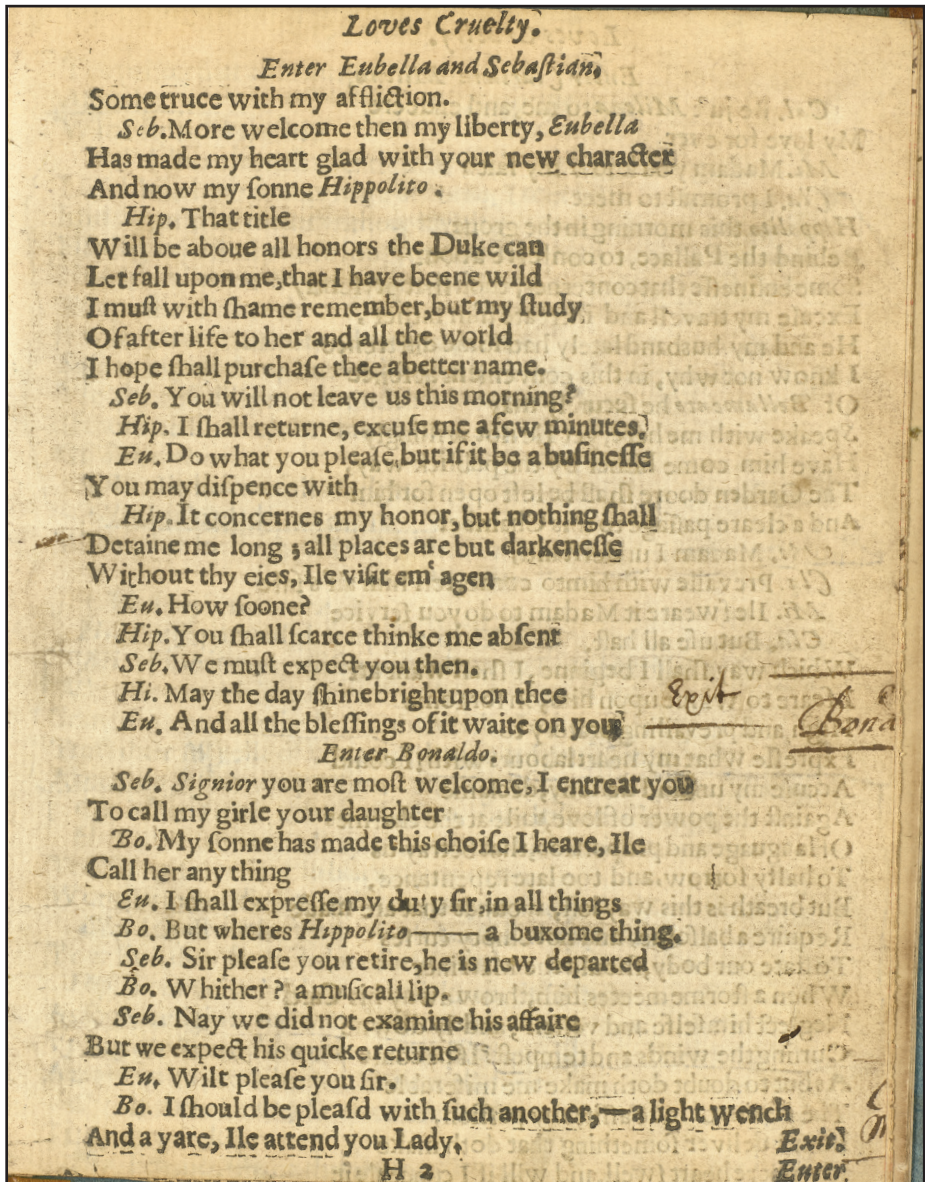 Loves Cruelty.
Enter Eubella and Sebaſtian.
Some truce with my affliction.
Seb. More welcome then my liberty, Eubella
Has made my heart glad with your new character
And now my ſonne Hippolito.
Hip. That title
Will be aboue all honors the Duke can
Let fall upon me, that I have beene wild
I muſt with ſhame remember, but my ſtudy
Of after life to her and all the world
I hope ſhall purchaſe thee a better name.
Seb. You will not leave us this morning?
Hip. I ſhall returne, excuſe me a few minutes.
Eu. Do what you pleaſe, but if it be a buſineſſe
You may diſpence with
Hip. It concernes my honor, but nothing ſhall
Detaine me long ; all places are but darkeneſſe
Without thy eies, Ile viſit em' agen
Eu. How ſoone?
Hip. You ſhall ſcarce thinke me abſent
Seb. We muſt expect you then.
Hi. May the day ſhine bright upon thee Exit
Eu. And all the bleſſings of it waite on you Bona
Enter Bonaldo.
Seb. Signior you are moſt welcome, I entreat you
To call my girle your daughter
Bo. My ſonne has made this choiſe I heare, Ile
Call her any thing
Eu. I ſhall expreſſe my duty ſir, in all things
Bo. But wheres Hippolito —— a buxome thing.
Seb. Sir pleaſe you retire, he is new departed
Bo. Whither ? a muſicall lip.
Seb. Nay we did not examine his affaire
But we expect his quicke returne
Eu. Wilt pleaſe you ſir.
Bo. I ſhould be pleaſd with ſuch another,—a light wench
And a yare, Ile attend you Lady. Exit.
H 2 Enter